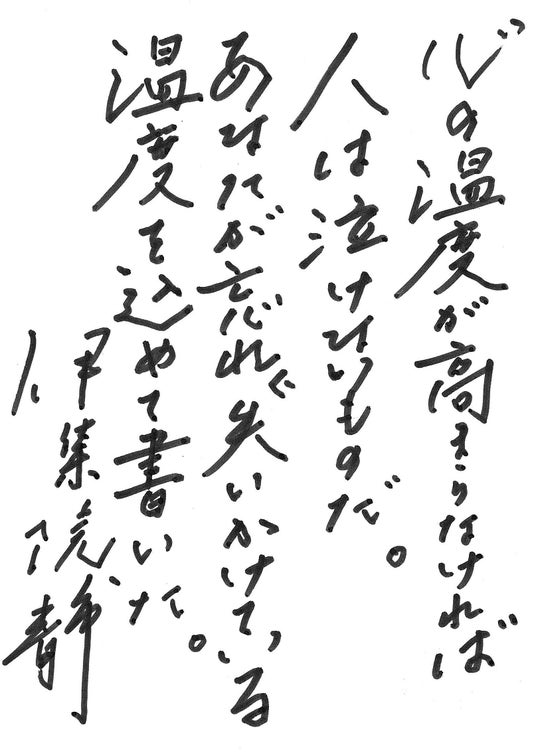 心の温度が高まらなければ
人は泣けないものだ。
あなたが忘れ、失いかけている
温度を込めて書いた。
伊集院静